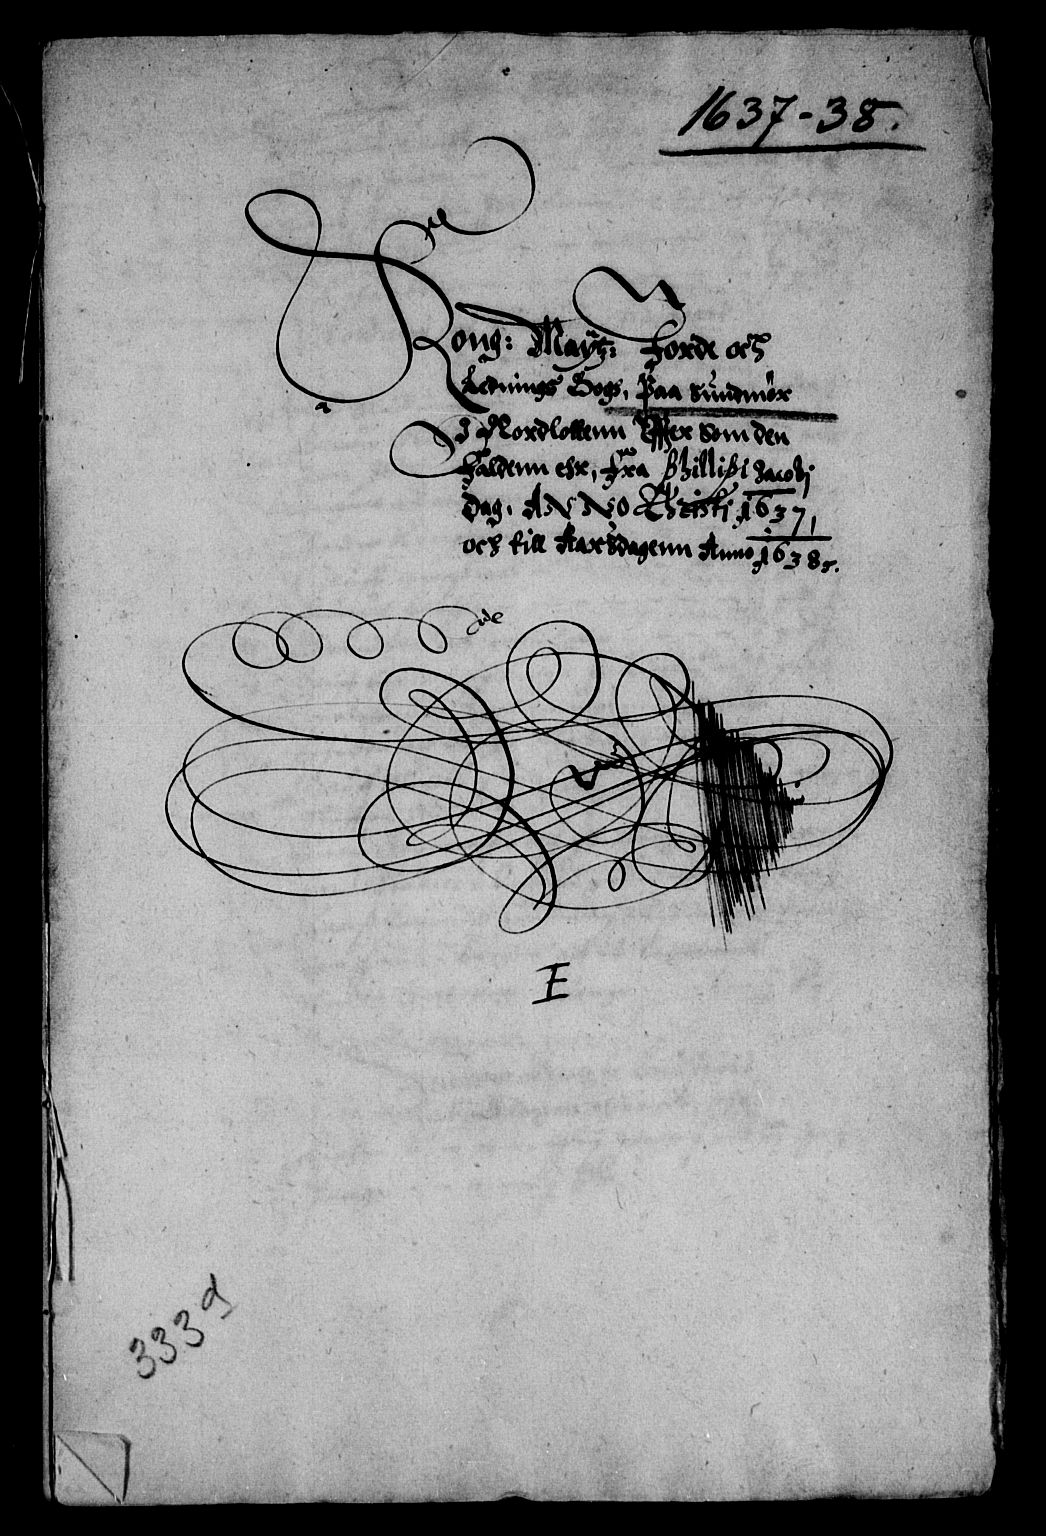 1637-38.
Kong: Maytz: Jorde och
Lednings Bogs, paa Sundmør
I Nordlottenn Effter som den
Faldenn ehr, fra Phillipi Jacobj
dag, ANNO Christi 1637,
och till Aarsdagenn Anno 1638.
E
3339